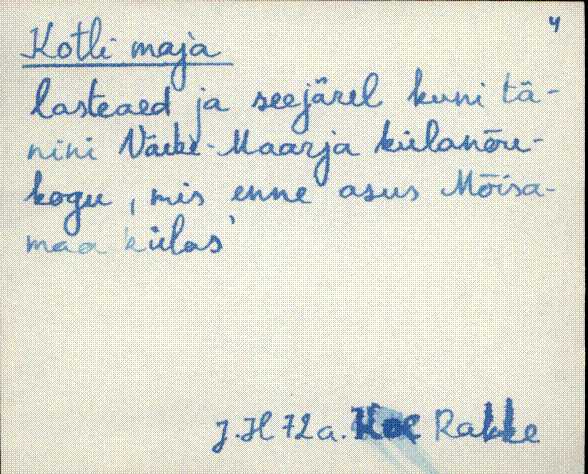 4
Kotli maja
lasteaed ja seejärel kuni tä-
nini Väike-Maarja külanõu-
kogu, mis enne asus Mõisa-
maa külas'
J.H 72 a. Koe Rakke